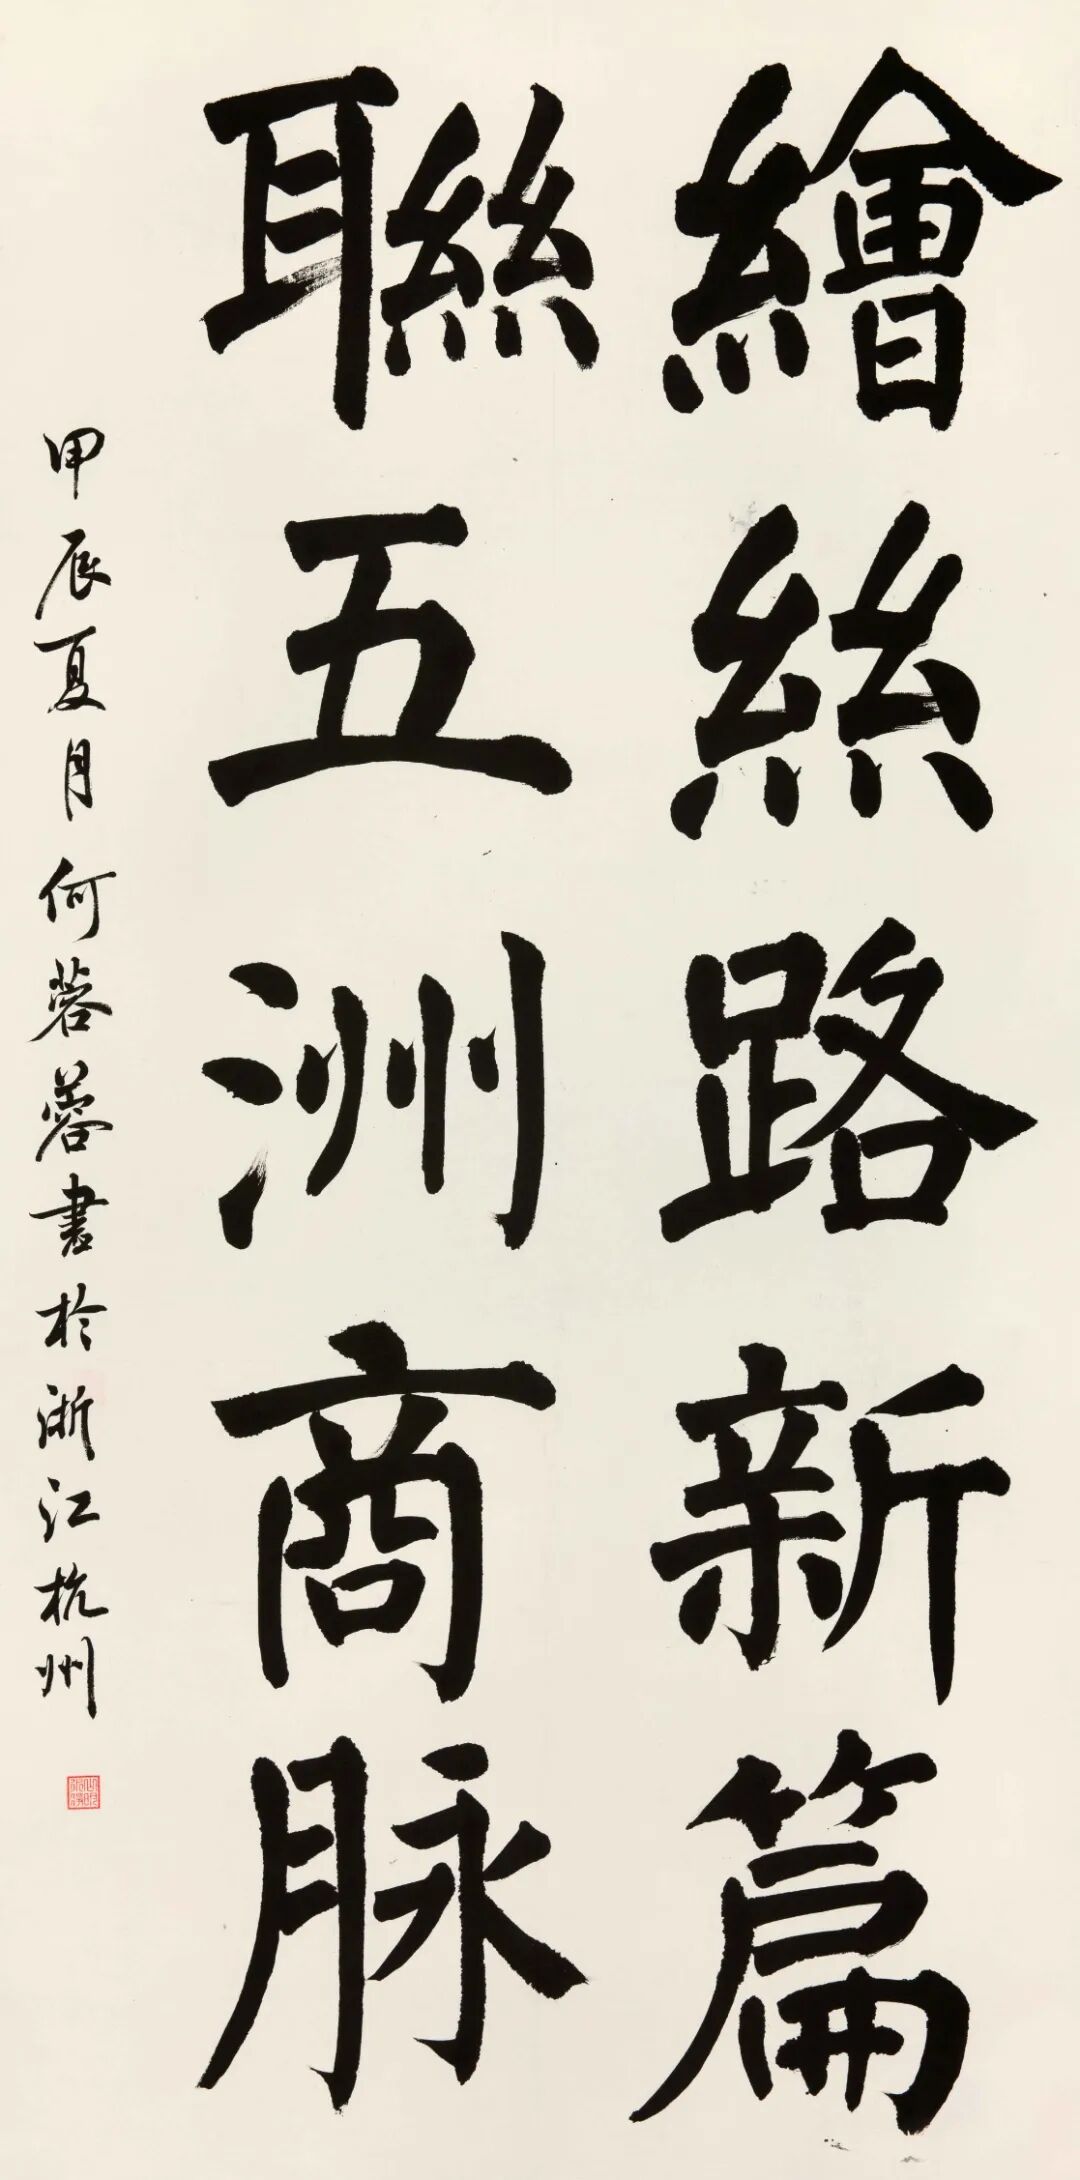 繪絲路新篇
聯五洲商脉
甲辰夏月何蓉蓉書於浙江杭州